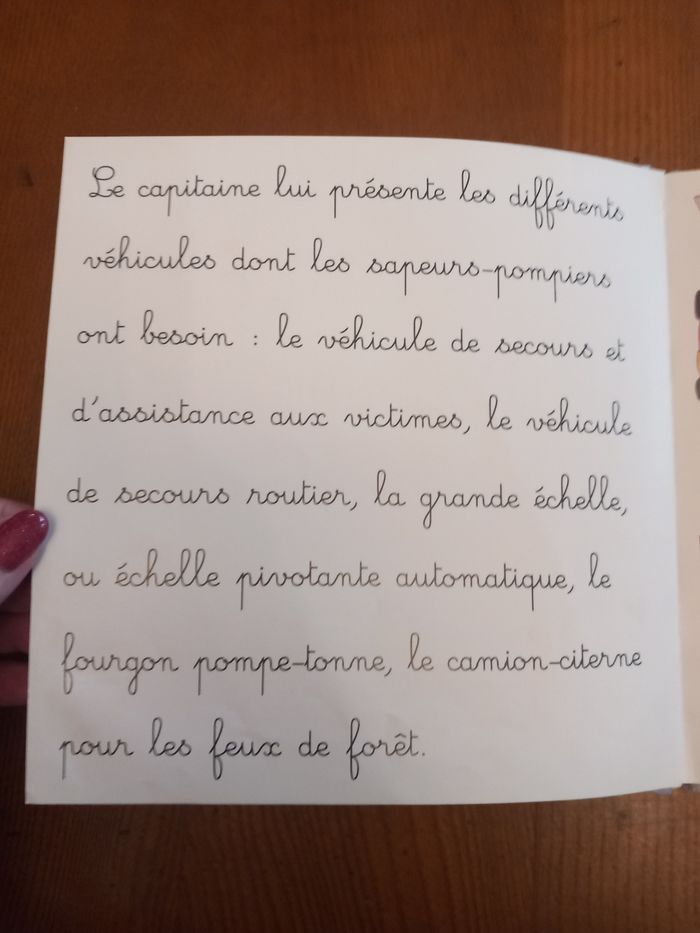 Le capitaine lui présente les différents
véhicules dont les sapeurs-pompiers
ont besoin : le véhicule de secours et
d'assistance aux victimes, le véhicule
de secours routier, la grande échelle,
ou échelle pivotante automatique, le
fourgon pompe-tonne, le camion-citerne
pour les feux de forêt.